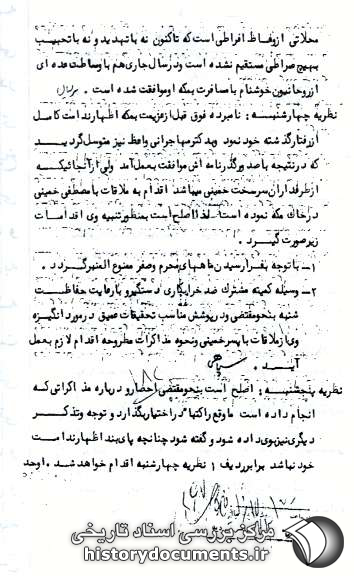 محلاتی از وعاظ افراطی است که تاکنون نه باتهدید و نه باتحبیب
بهیچ صراطی مستقیم نشده است و در سال جاری هم با وساطت عده ای
از روحانیون خوشنام با مسافرت بمکه او موافقت شده است .
نظریه چهارشنبه : نامبرده فوق قبل از عزیمت بمکه اظهار ندامت کامل
از رفتار گذشته خود نمود و بدکتر مهاجرانی واعظ نیز متوسل گردید
که در نتیجه با صدور گذرنامه اش موافقت بعمل آمد ولی از آنجائیکه
از طرفداران سرسخت خمینی میباشد اقدام به ملاقات با مصطفی خمینی
در خاک مکه نموده است لذا اصلح است بمنظور تنبیه وی اقدامات
زیر صورت گیرد .
۱ - با توجه بفرا رسیدن ماههای محرم و صفر ممنوع المنبر گردد .
۲ - وسیله کمیته مشترک ضد خرابکاری دستگیر و با رعایت حفاظت
شنبه بنحو مقتضی و در پوشش مناسب تحقیقات عمیق در مورد انگیزه
وی از ملاقات با پسر خمینی و نحوه مذاکرات مطروحه اقدام لازم بعمل
آید .
نظریه پنجشنبه : اصلح است بنحو مقتضی احضار و درباره مذاکراتی که
انجام داده است ماوقع را کتبا" در اختیار بگذارد و توجه و تذکر
دیگری نیز بوی داده شود و گفته شود چنانچه پای بند اظهار ندامت
خود نباشد برابر ردیف ۱ نظریه چهارشنبه اقدام خواهد شد . اوحد
مرکز بررسی اسناد تاریخی
historydocuments.ir